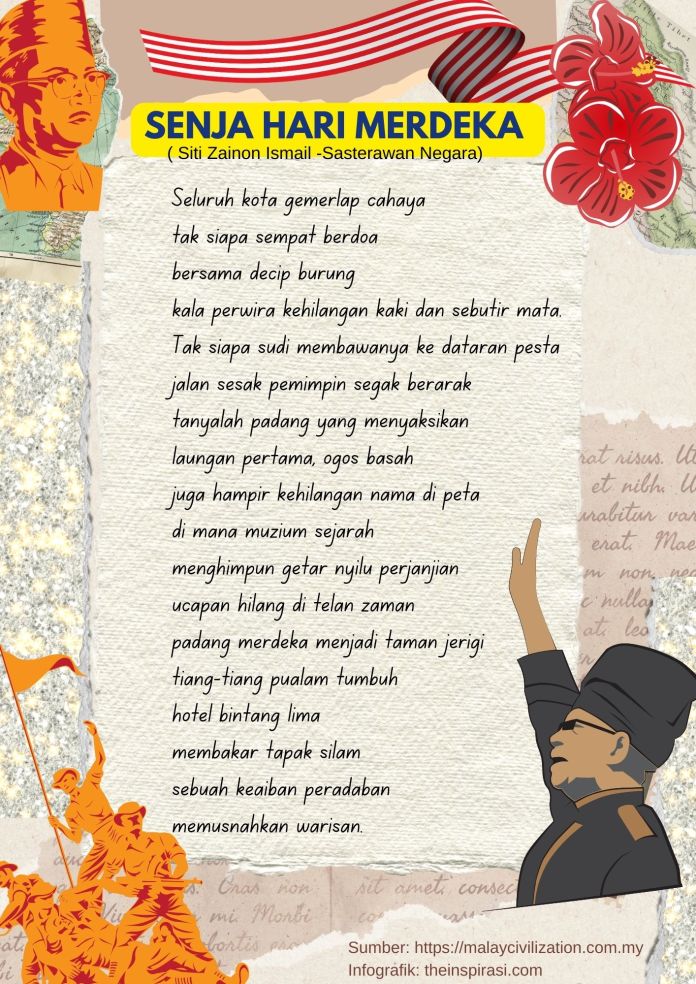 SENJA HARI MERDEKA
( Siti Zainon Ismail -Sasterawan Negara)
Seluruh kota gemerlap cahaya
tak siapa sempat berdoa
bersama decip burung
kala perwira kehilangan kaki dan sebutir mata.
Tak siapa sudi membawanya ke dataran pesta
jalan sesak pemimpin segak berarak
tanyalah padang yang menyaksikan
laungan pertama, ogos basah
juga hampir kehilangan nama di peta
di mana muzium sejarah
menghimpun getar nyilu perjanjian
ucapan hilang di telan zaman
padang merdeka menjadi taman jerigi
tiang-tiang pualam tumbuh
hotel bintang lima
membakar tapak silam
sebuah keaiban peradaban
memusnahkan warisan.
risus. Ut
et nibh. U
erat. Mae
m non, nec
nulla
at, leo
Cras non
mi. Morbi
sit amet, consec
Sumber: https://malaycivilization.com.my
Infografik: theinspirasi.com